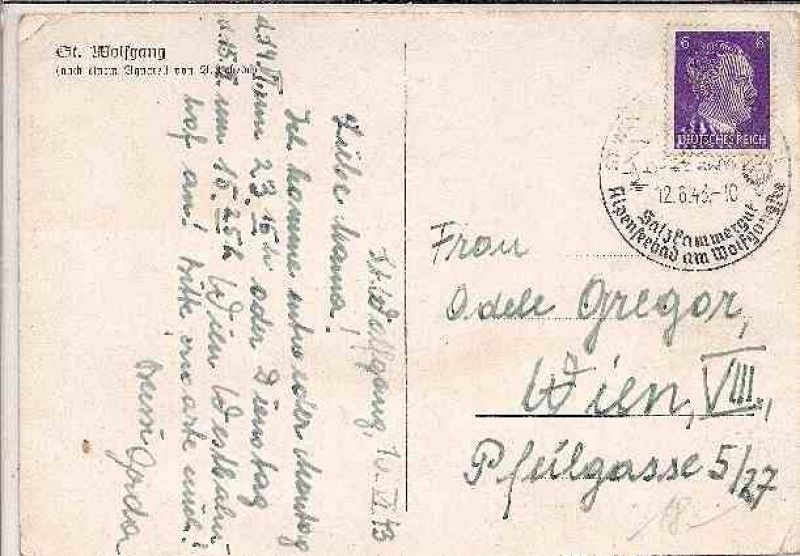 St. Wolfgang
(nach einem Aquarell von
St. Wolfgang, 10. VI. 43
Liebe Mama!
Ich komme entweder Montag
d. 14. VI. um 23.15h oder Dienstag
d. 15. VI. um 10.25h Wien Westbahn-
hof an! Bitte, erwarte mich!
Gerda
6 6
DEUTSCHES REICH
12.6.43.-10
Salzkammergut
Alpenseebad am Wolfgangsee
Frau
Odele Gregor,
Wien, VIII.,
Pfeilgasse 5/27
18.-